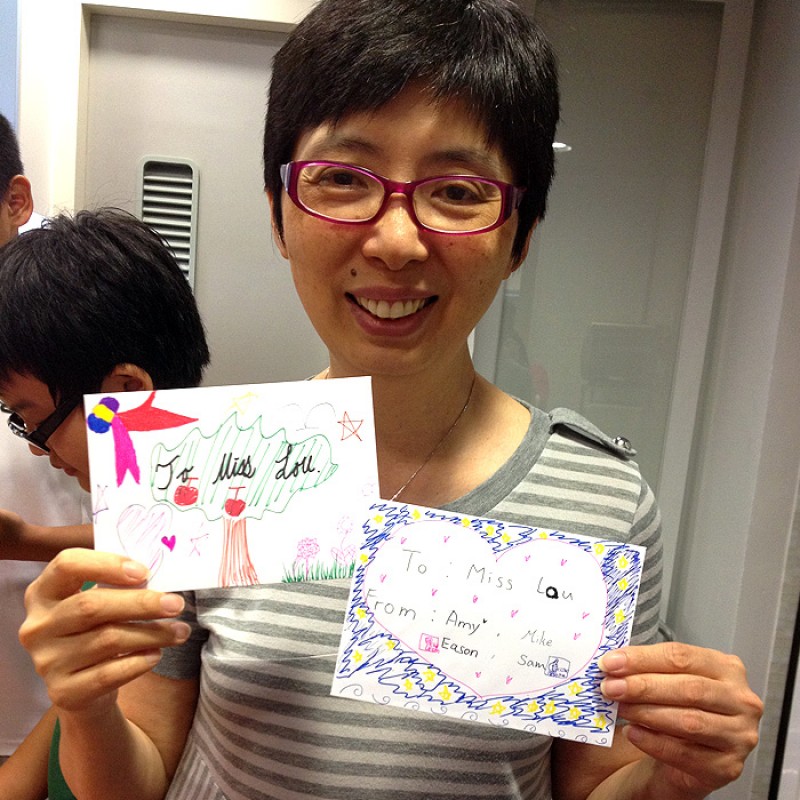 To Miss Lou.
To : Miss Lau
From : Amy , Mike
Eason , Sam